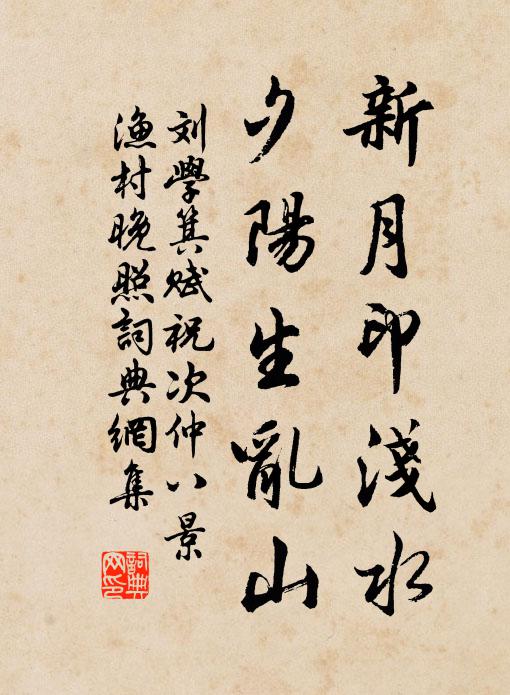 新月印淺水
夕陽生亂山
刘學箕賦祝次仲八景
漁村晚照詞典網集
詞典網印